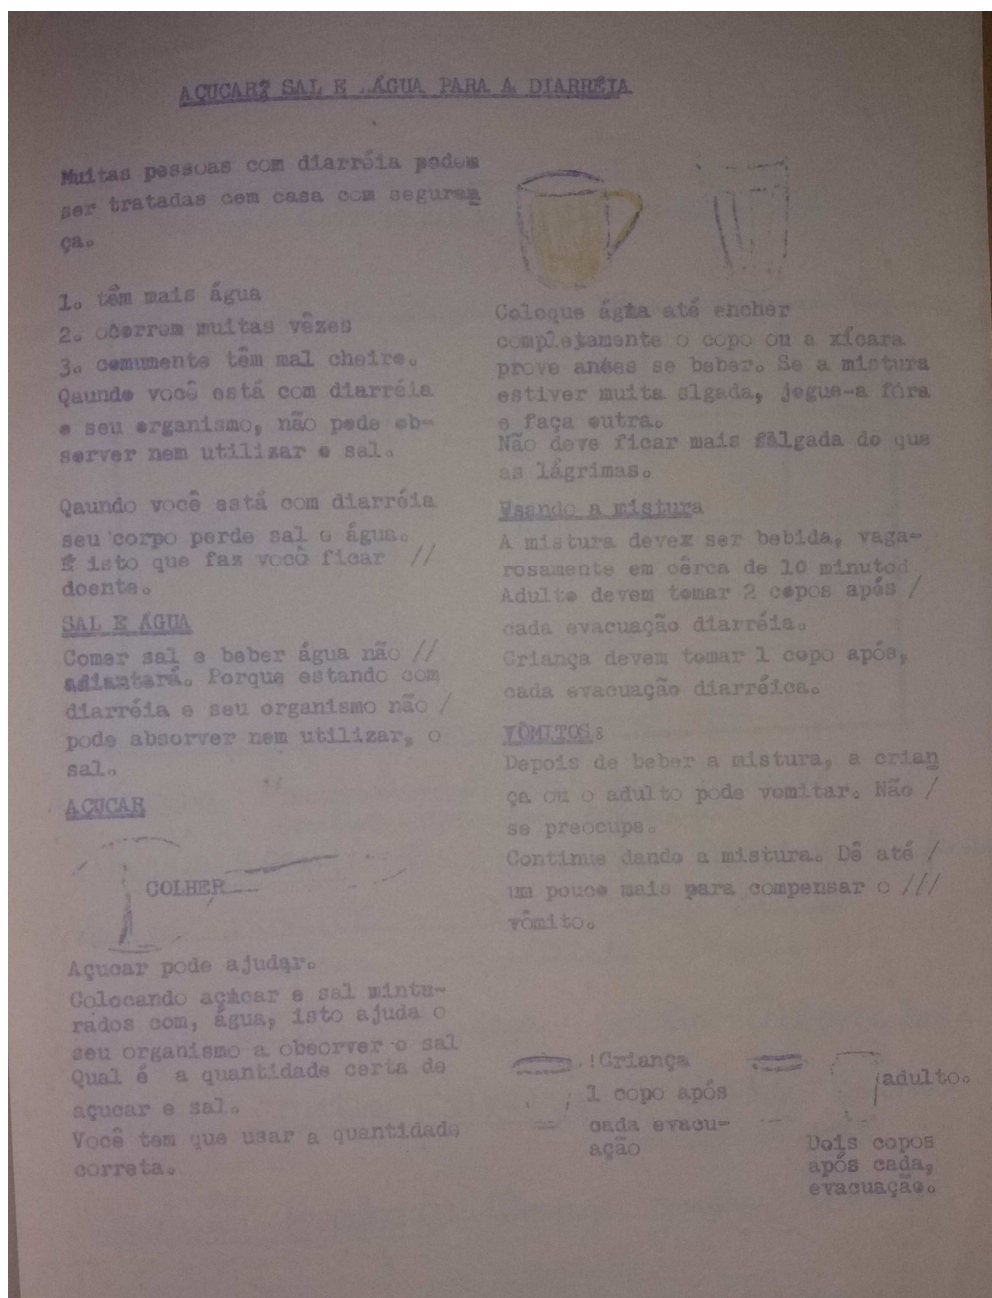 AÇUCAR? SAL E ..ÁGUA PARA A DIARRÉIA
Muitas pessoas com diarréia podem
ser tratadas cem casa com seguran
ça.
1. têm mais água
2. ocorrem muitas vêzes
3. comumente têm mal cheiro.
Qaundo você está com diarréia
o seu organismo, não pode ob-
server nem utilizar o sal.
Qaundo você está com diarréia
seu corpo perde sal e água.
É isto que faz você ficar //
doente.
SAL E ÁGUA
Comer sal e beber água não //
adiantará. Porque estando com
diarréia e seu organismo não /
pode absorver nem utilizar, o
sal.
AÇUCAR
COLHER
Açucar pode ajudar.
Colocando açucar e sal mintu-
rados com, água, isto ajuda o
seu organismo a obsorver o sal
Qual é a quantidade certa de
açucar e sal.
Você tem que usar a quantidade
correta.
Coloque água até encher
completamente o copo ou a xícara
prove antes se beber. Se a mistura
estiver muita slgada, jogue-a fôra
e faça outra.
Não deve ficar mais salgada do que
as lágrimas.
Usando a mistura
A mistura devex ser bebida, vaga-
rosamente em cêrca de 10 minutod
Adulto devem tomar 2 copos após /
cada evacuação diarréia.
Criança devem tomar 1 copo após,
cada evacuação diarréica.
VÔMITOS:
Depois de beber a mistura, a crian
ça ou o adulto pode vomitar. Não /
se preocupe.
Continue dando a mistura. Dê até /
um pouco mais para compensar o ///
vômito.
!Criança
1 copo após
cada evacu-
ação
adulto.
Dois copos
após cada,
evacuação.